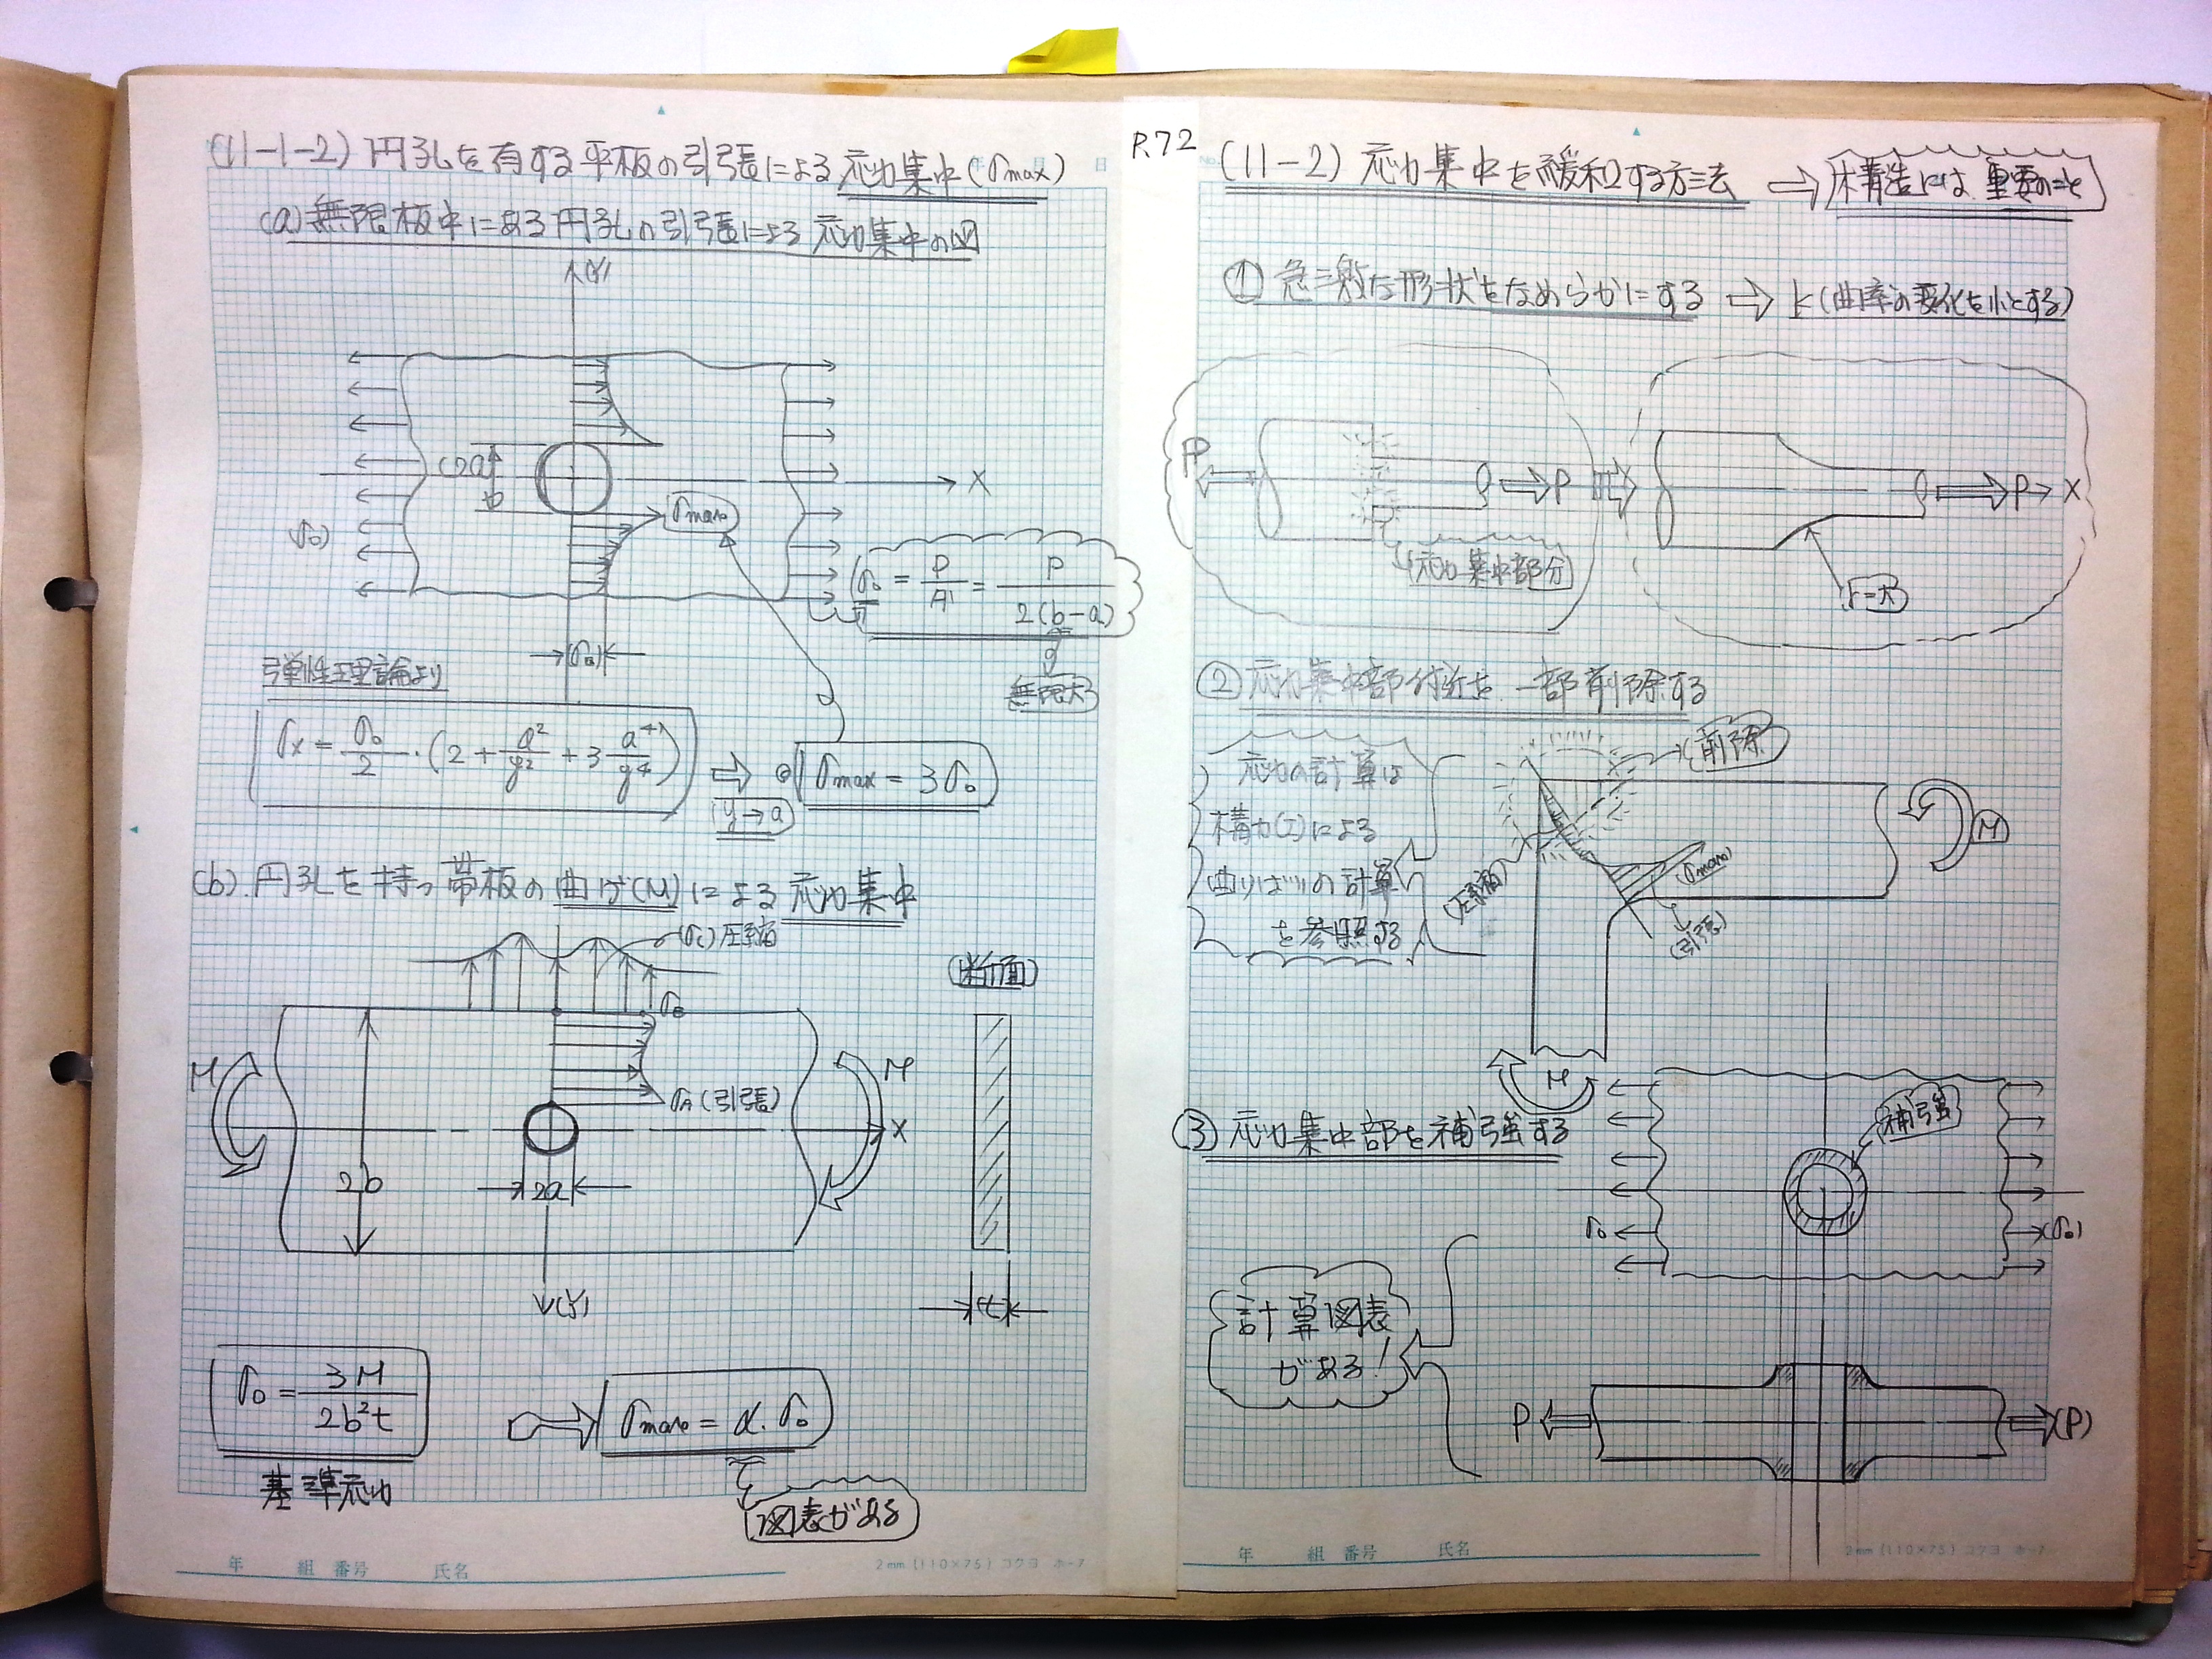 (11-1-2) 円孔を有する平板の引張による応力集中(σmax)
(a) 無限板中にある円孔の引張による応力集中の図
(Y)
(2a)
X
σmax
(σ0)
σ0 = P/A = P/2(b-a)
無限大
(σ0)
弾性理論より
σx = σ0/2 · (2 + a²/y² + 3 a⁴/y⁴)
(y→a)
σmax = 3σ0
(b) 円孔を持つ帯板の曲げ(M)による応力集中
(σc) 圧縮
(断面)
σB
M
M
σA (引張)
X
2b
2a
(Y)
(t)
σ0 = 3M/2b²t
基準応力
σmax = α·σ0
図表がある
年 組 番号 氏名
2mm (110×75) コクヨ ホ-7
P.72
(11-2) 応力集中を緩和する方法 ⇒ 構造には重要のこと
① 急激な形状をなめらかにする ⇒ (曲率の変化を小とする)
P
P
P → X
(応力集中部分)
r=大
② 応力集中部付近を一部削除する
(削除)
応力の計算は
構力(I)による
曲りばりの計算
を参照する
M
σmax
(圧縮)
(引張)
M
③ 応力集中部を補強する
補強
σ0
(σ0)
計算図表
がある!
P
(P)
年 組 番号 氏名
2mm (110×75) コクヨ ホ-7